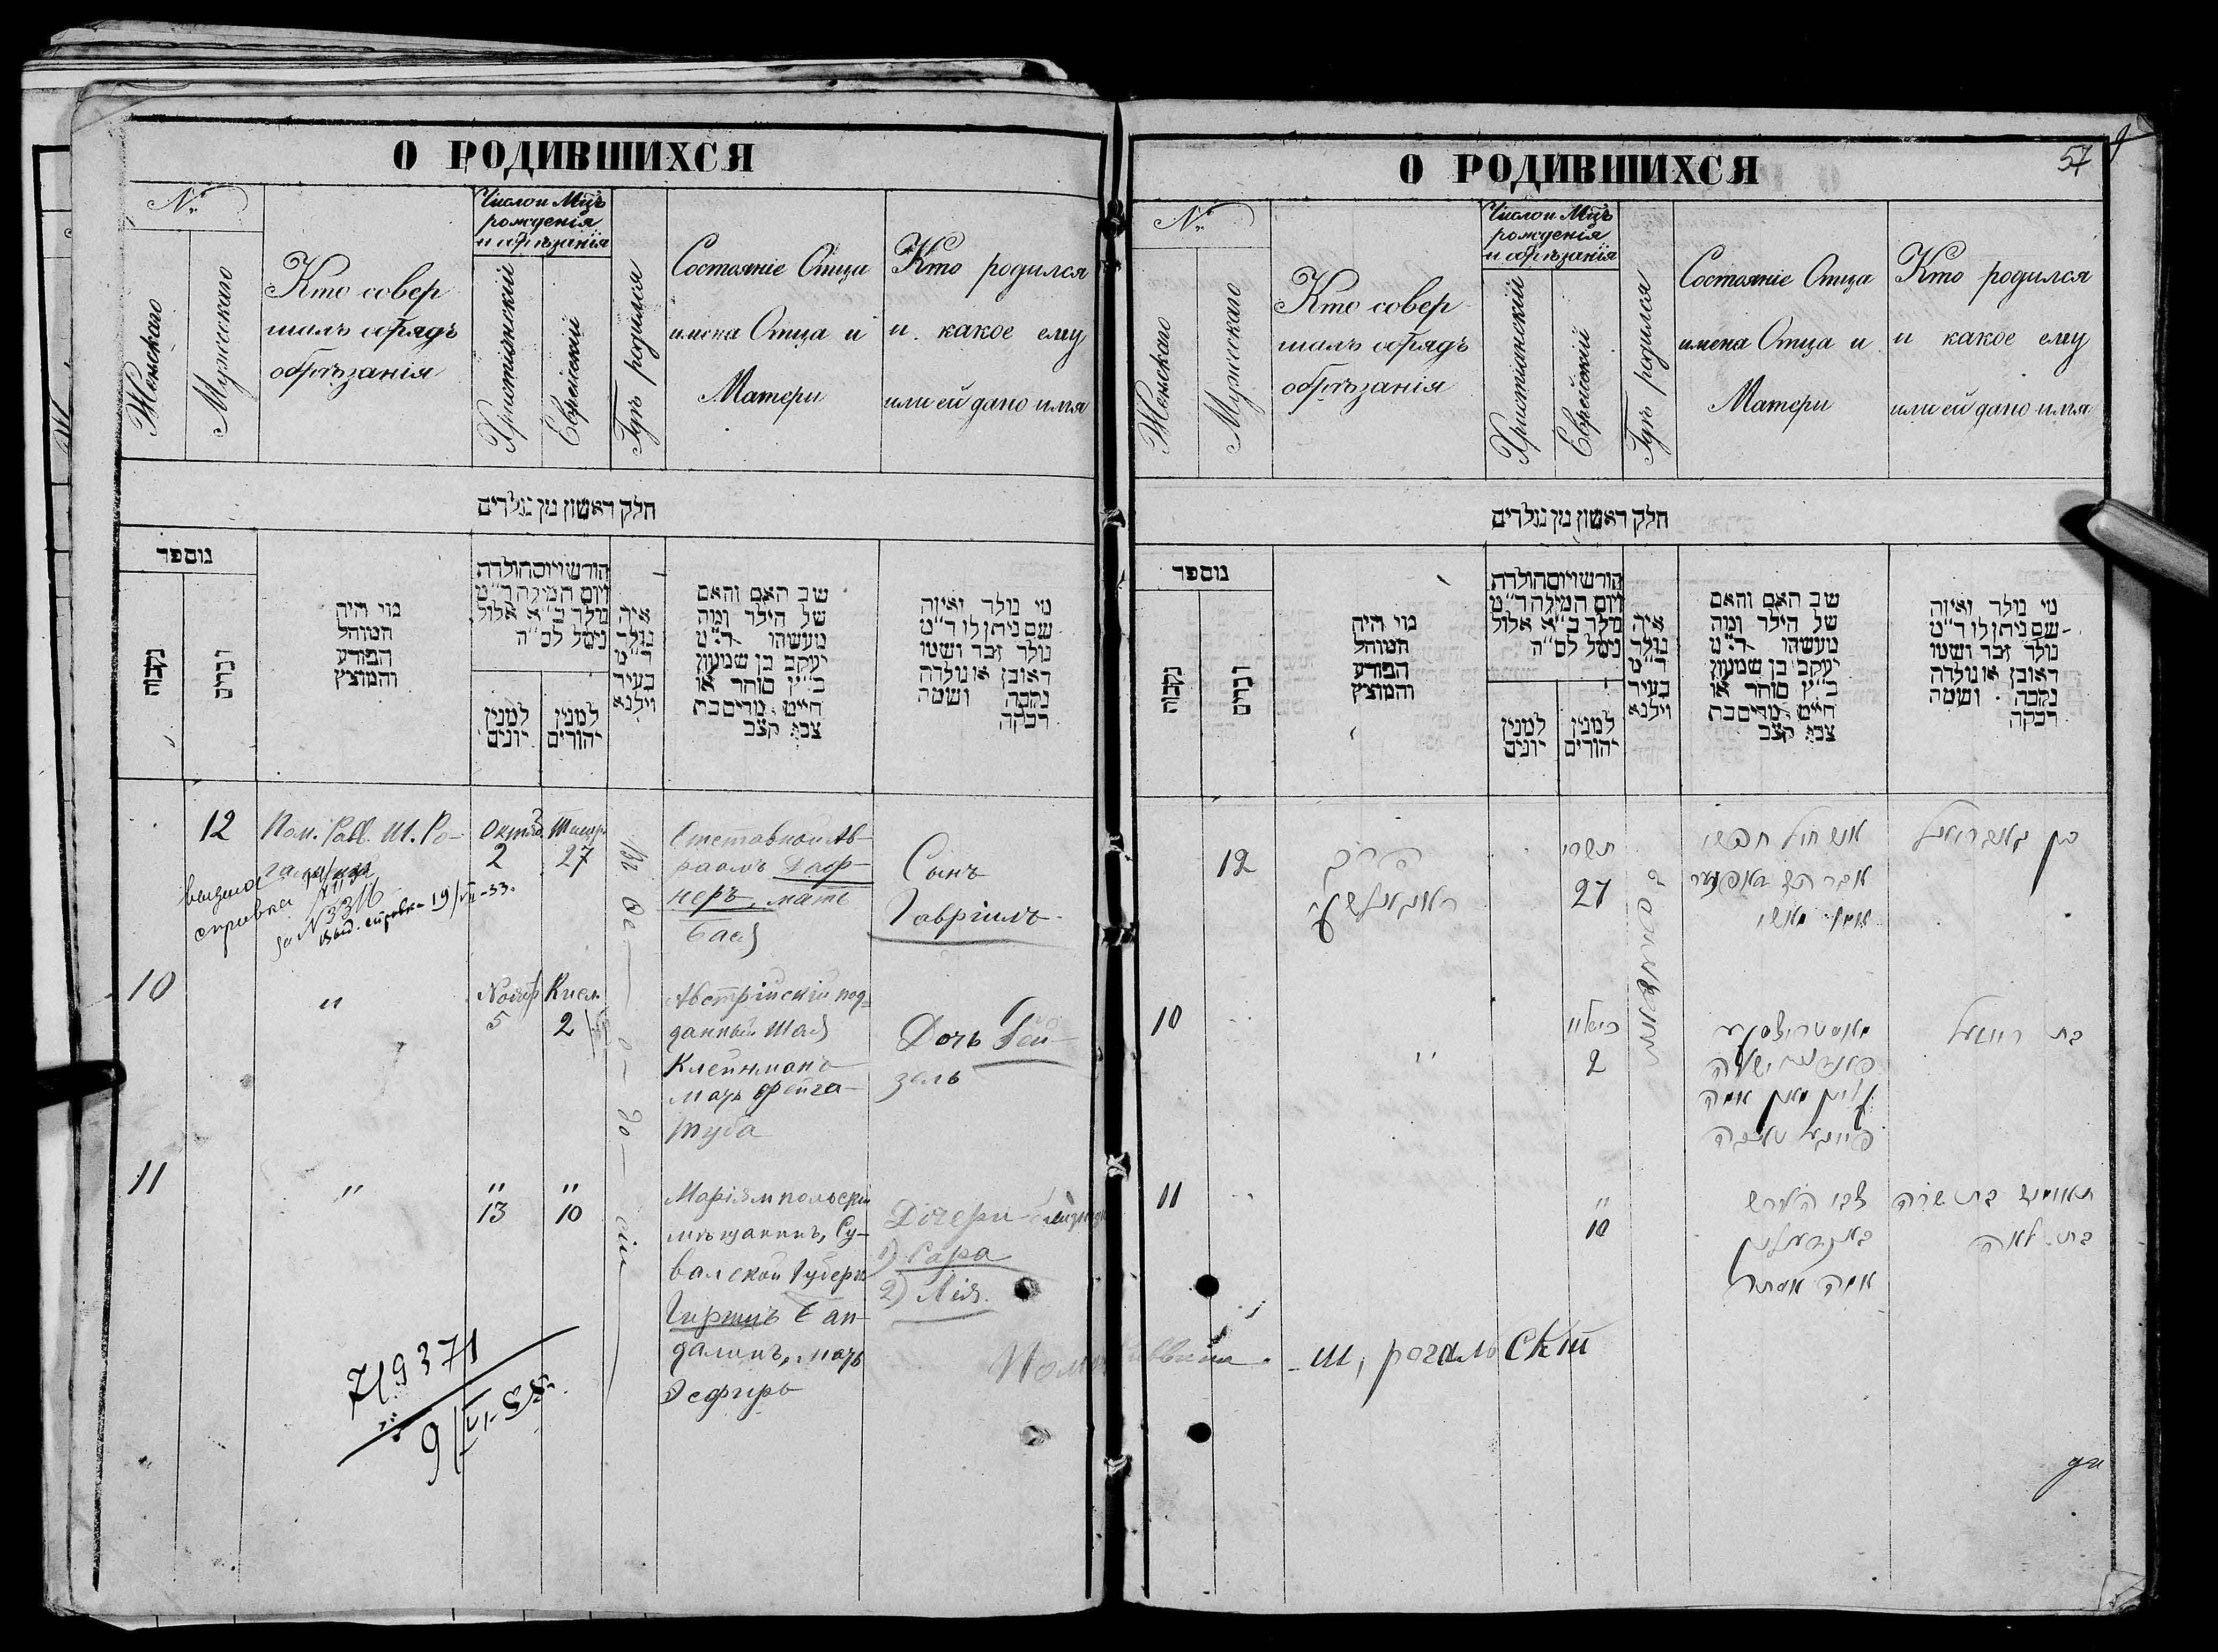 О РОДИВШИХСЯ
№
Женскаго
Мужескаго
Кто совер
шалъ обрядъ
обрѣзанія
Число и Мцъ
рожденія
и обрѣзанія
Христіанскій
Еврейскій
Гдѣ родился
Состояніе Отца
имена Отца и
Матери
Кто родился
и какое ему
или ей дано имя
חלק ראשון מן נולדים
מספר
נקבות
זכרים
מי היה
המוהל
הפורע
והמוצץ
חודש ויום הולדת
ויום המילה ד״מ
נולד ב״א אלול
נימל לס״ה
למנין
יונים
למנין
יהודים
איה
נולד
ד״מ
בעיר
וילנא
שב האם והאם
של הילד ומה
מעשהו ד״מ
יעקב בן שמעון
כ״ץ סוחר או
חייט מרים בת
צבי קצב
מי נולד ואיזה
שם ניתן לו ד״מ
נולד זכר ושמו
ראובן או נולדה
נקבה ושמה
רבקה
12
Пом. Равв. Ш. Ро-
Октяб.
2
Тишр.
27
Отставной Ав-
раамъ Даф-
неръ, мать
Бася
Сынъ
Гавріилъ
выдана
справка
за N 3316
выд. справка 19/VII-33.
10
"
Нояб.
5
Кисл.
2
Австрійскій под-
данный Шая
Клейнманъ
мать Фейга-
Туба
Дочь Рей-
зель
11
"
"
13
"
10
Маріампольскій
мѣщанинъ, Су-
валской Губерн.
Гиршъ Ван-
далинъ, мать
Эсфирь
Дочери близнецы
1) Сара
2) Лія.
719371
9/VI-38.
О РОДИВШИХСЯ
57
№
Женскаго
Мужескаго
Кто совер
шалъ обрядъ
обрѣзанія
Число и Мцъ
рожденія
и обрѣзанія
Христіанскій
Еврейскій
Гдѣ родился
Состояніе Отца
имена Отца и
Матери
Кто родился
и какое ему
или ей дано имя
חלק ראשון מן נולדים
מספר
נקבות
זכרים
מי היה
המוהל
הפורע
והמוצץ
חודש ויום הולדת
ויום המילה ד״מ
נולד ב״א אלול
נימל לס״ה
למנין
יונים
למנין
יהודים
איה
נולד
ד״מ
בעיר
וילנא
שב האם והאם
של הילד ומה
מעשהו ד״מ
יעקב בן שמעון
כ״ץ סוחר או
חייט מרים בת
צבי קצב
מי נולד ואיזה
שם ניתן לו ד״מ
נולד זכר ושמו
ראובן או נולדה
נקבה ושמה
רבקה
12
תשרי
27
איש חיל חפשי
בן גאבריאל
10
"
כסליו
2
פייגע טויבה
בת רייזעל
11
"
10
צבי הירש
אמה אסתר
תאומים בת שרה
בת לאה
Ш. Рогальскій